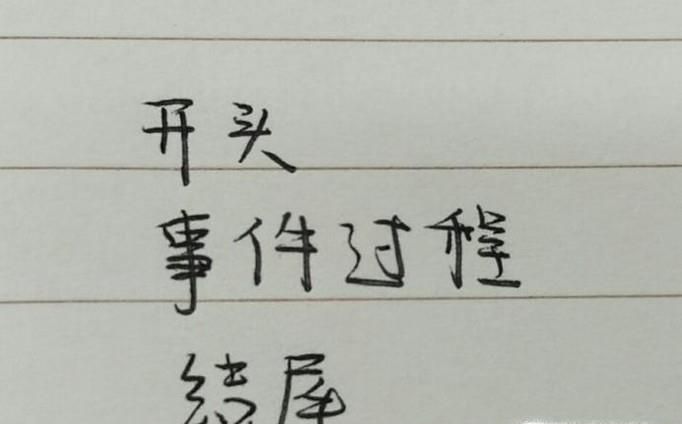 开头
事件过程
结尾